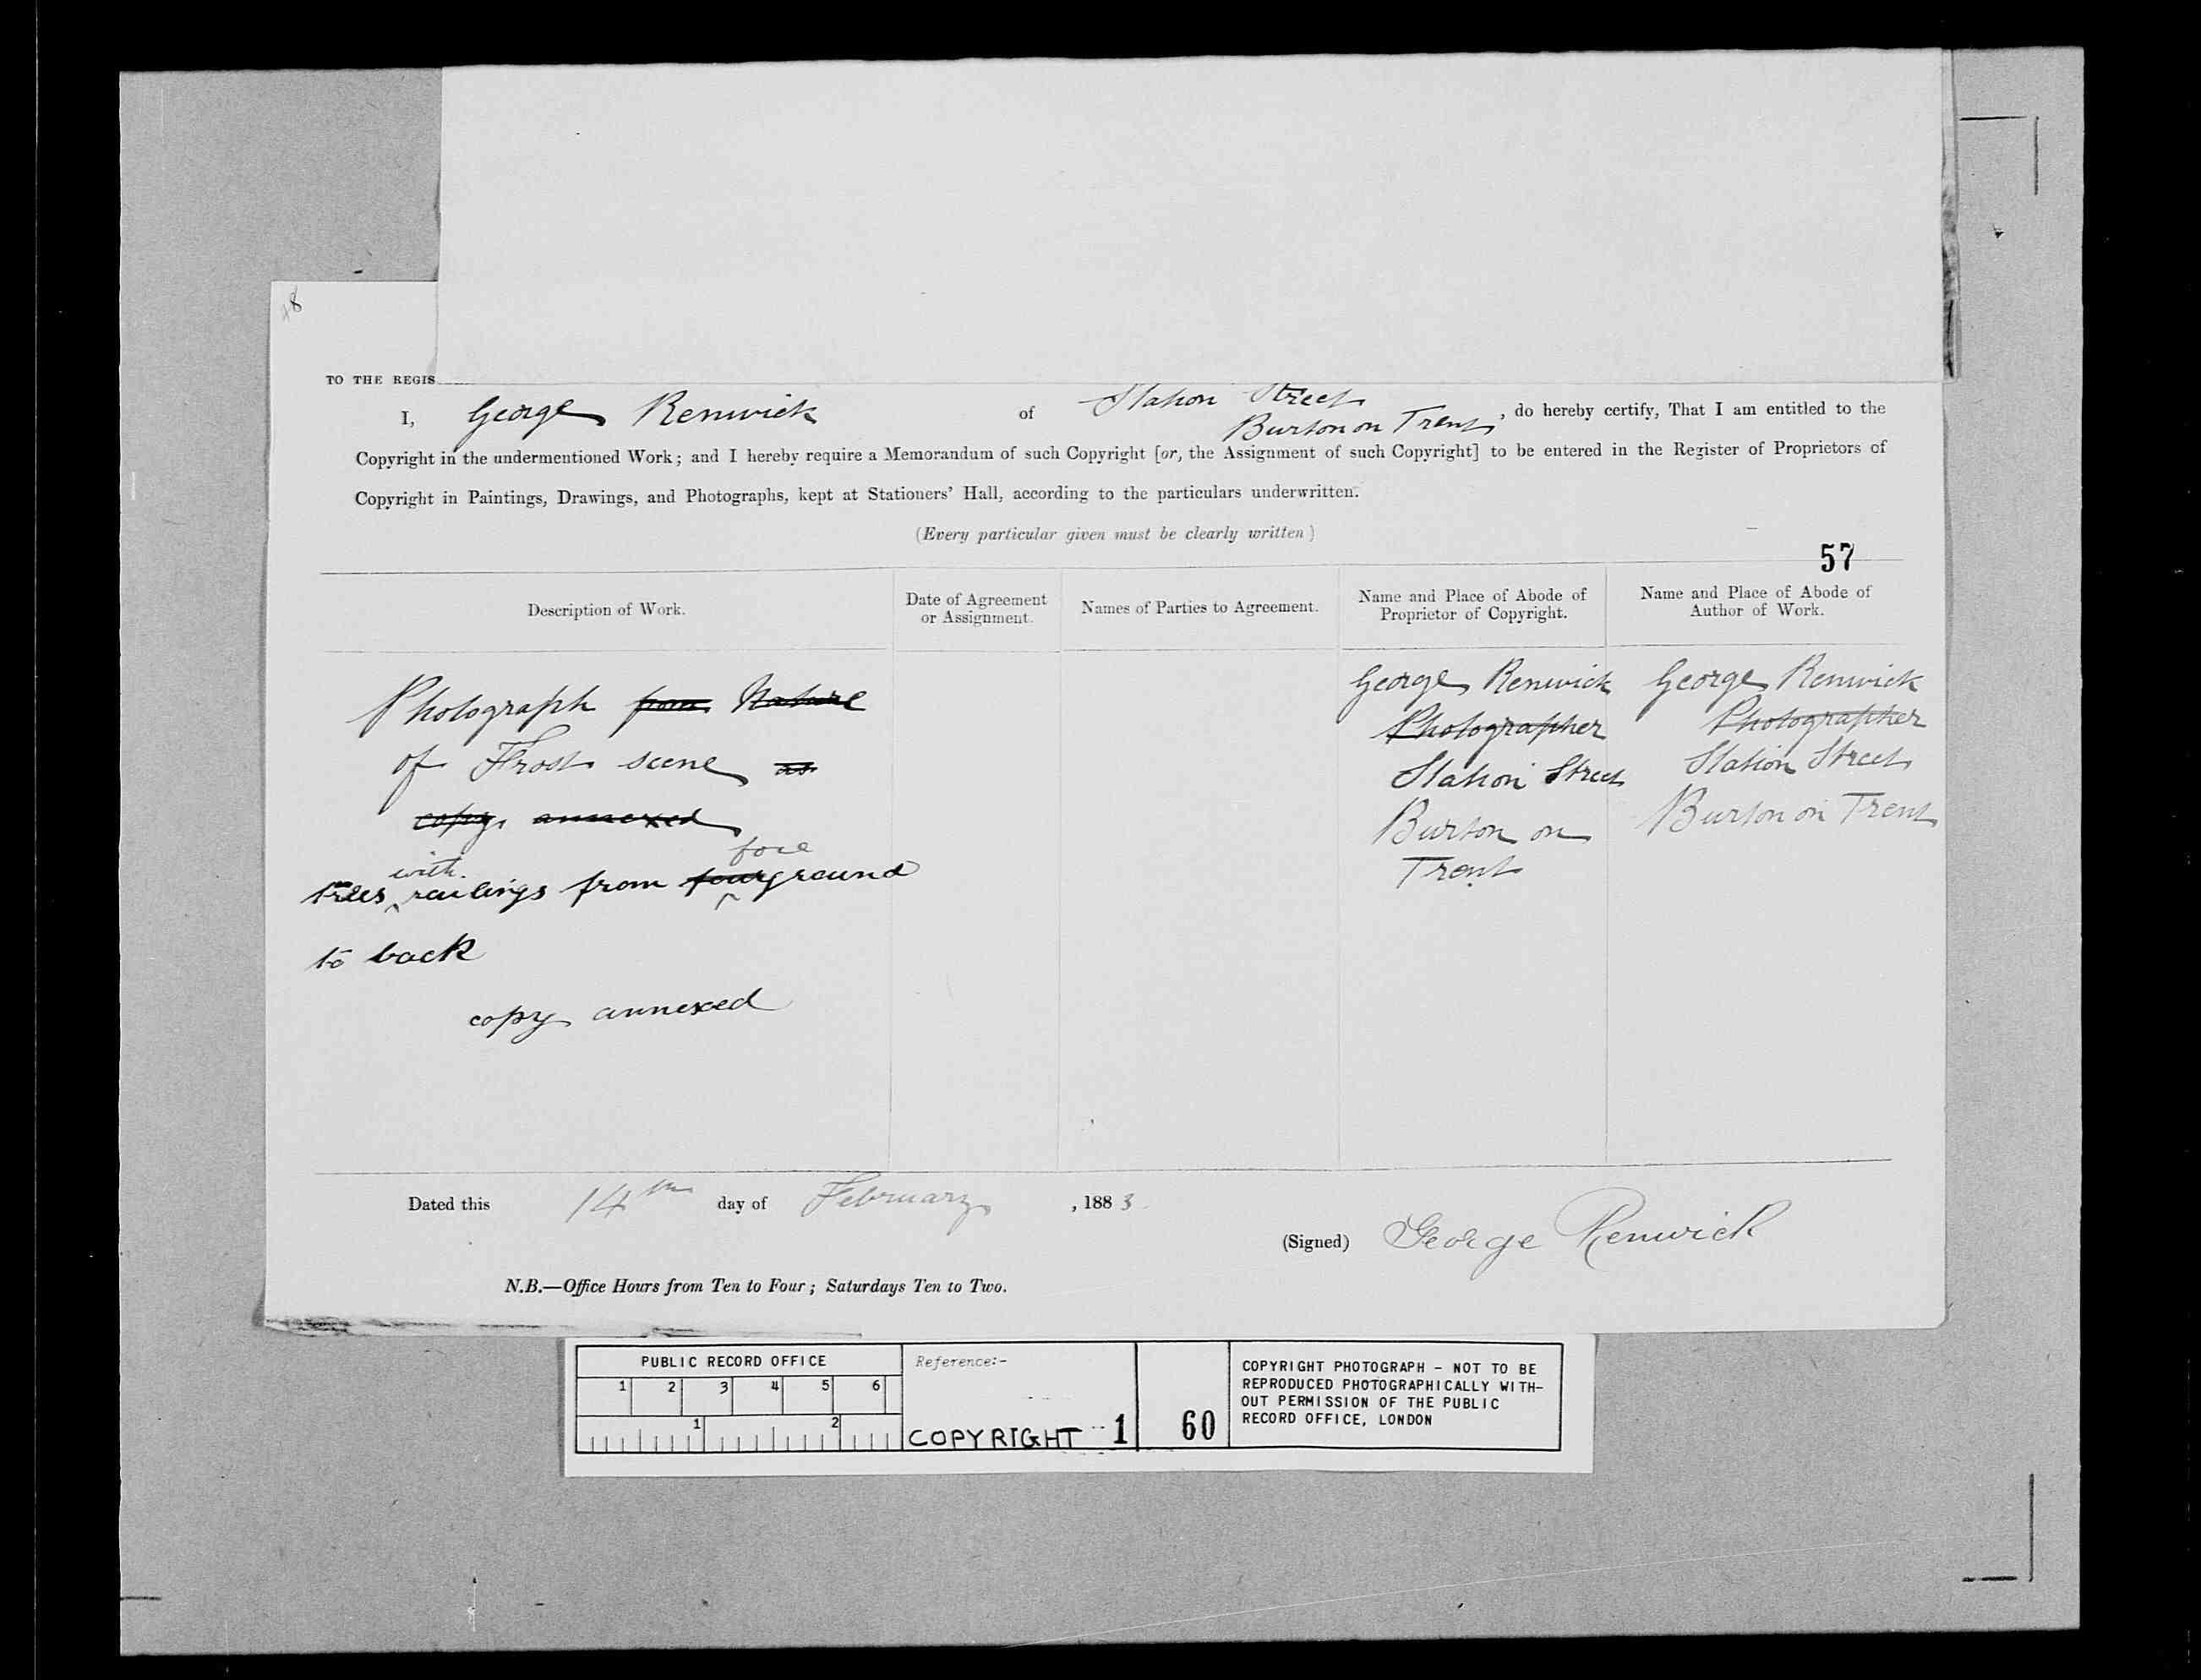 48
TO THE REGIS
I, George Renwick of Station Street
Burton on Trent, do hereby certify, That I am entitled to the
Copyright in the undermentioned Work; and I hereby require a Memorandum of such Copyright [or, the Assignment of such Copyright] to be entered in the Register of Proprietors of
Copyright in Paintings, Drawings, and Photographs, kept at Stationers' Hall, according to the particulars underwritten.
(Every particular given must be clearly written)
57
Description of Work.
Date of Agreement
or Assignment.
Names of Parties to Agreement.
Name and Place of Abode of
Proprietor of Copyright.
Name and Place of Abode of
Author of Work.
Photograph from Nature
of Frost scene as
copy annexed
fore
with
trees railings from fourground
to back
copy annexed
George Renwick
Photographer
Station Street
Burton on
Trent
George Renwick
Photographer
Station Street
Burton on Trent
Dated this 14th day of February, 1883
(Signed) George Renwick
N.B.—Office Hours from Ten to Four; Saturdays Ten to Two.
PUBLIC RECORD OFFICE
1 2 3 4 5 6
1 2
Reference:-
COPYRIGHT 1 60
COPYRIGHT PHOTOGRAPH - NOT TO BE
REPRODUCED PHOTOGRAPHICALLY WITH-
OUT PERMISSION OF THE PUBLIC
RECORD OFFICE, LONDON